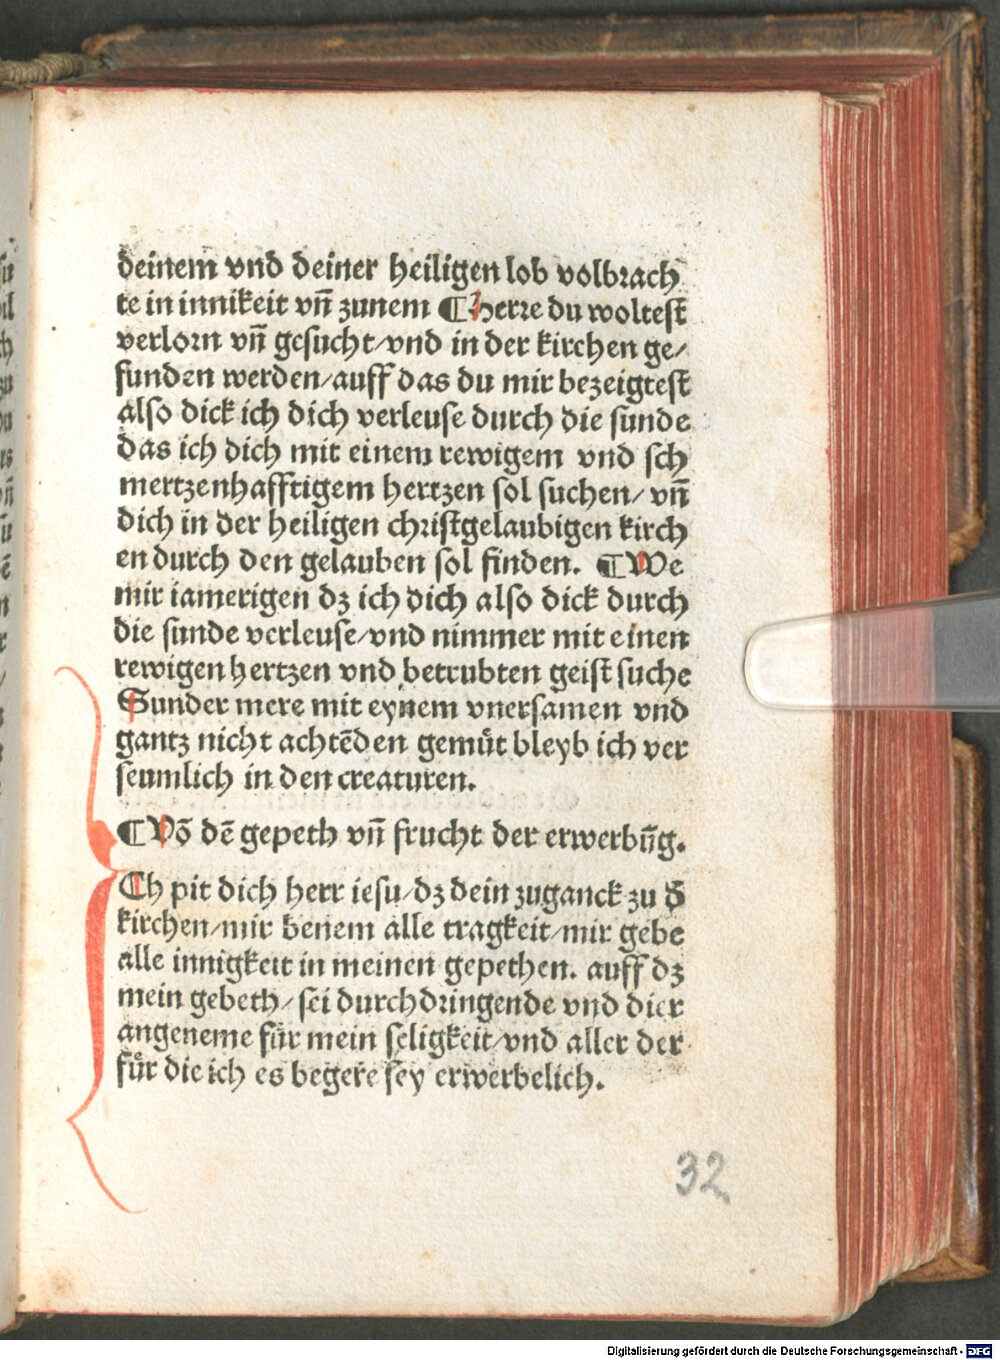 deinem vnd deiner heiligen lob volbrach
te in innikeit vñ zunem ¶ Herre du woltest
verlorn vñ gesucht/vnd in der kirchen ge/
funden werden/auff das du mir bezeigtest
also dick ich dich verleuse durch die sunde
das ich dich mit einem rewigem vnd sch
mertzenhafftigem hertzen sol suchen/ vñ
dich in der heiligen christgelaubigen kirch
en durch den gelauben sol finden. ¶ We
mir iamerigen dz ich dich also dick durch
die sunde verleuse/vnd nimmer mit einen
rewigen hertzen vnd betrubten geist suche
Sunder mere mit eynem vnersamen vnd
gantz nicht achtēden gemuͤt bleyb ich ver
seumlich in den creaturen.
¶ Vō dē gepeth vñ frucht der erwerbūg.
Ich pit dich herr iesu/dz dein zuganck zu đ
kirchen/mir benem alle tragkeit/mir gebe
alle innigkeit in meinen gepethen. auff dz
mein gebeth/ sei durchdringende vnd dier
angeneme fuͤr mein seligkeit/vnd aller der
fuͤr die ich es begere sey erwerbelich.
32
Digitalisierung gefördert durch die Deutsche Forschungsgemeinschaft - DFG